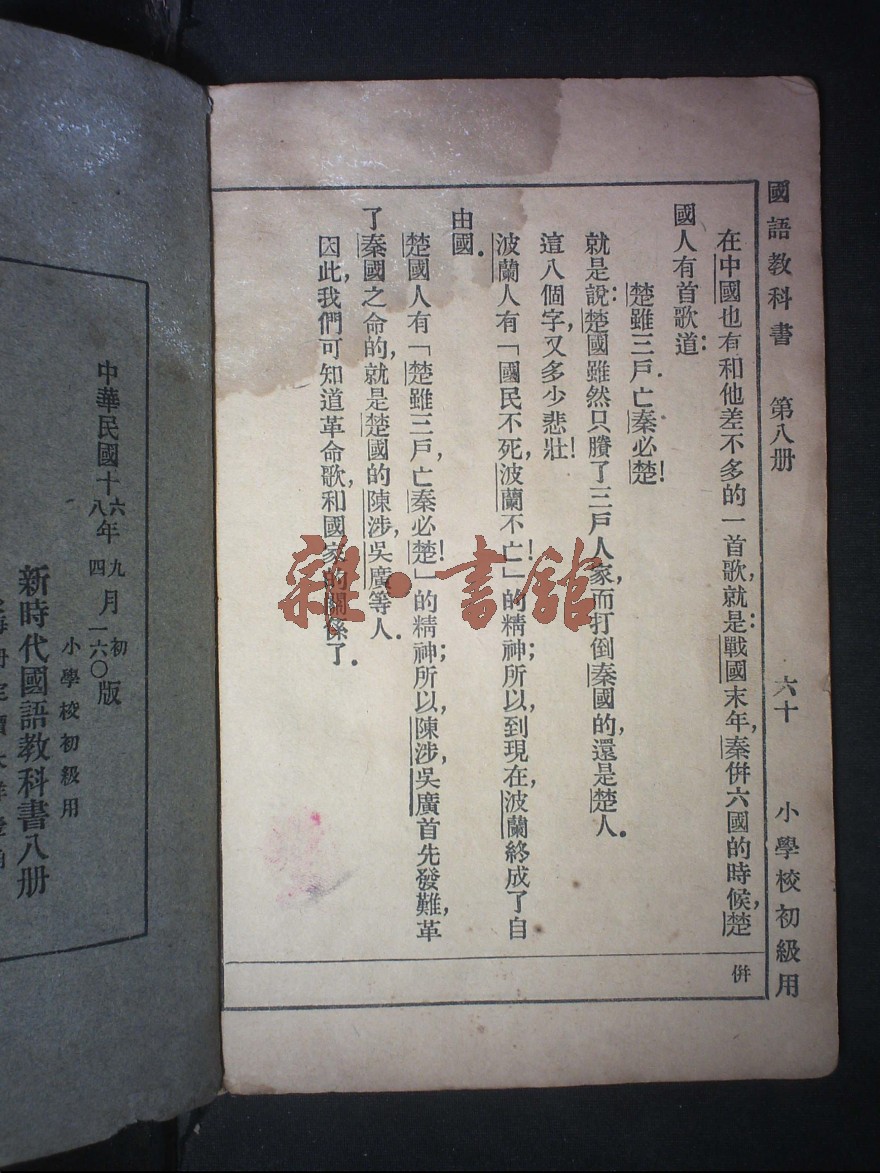 國語教科書 第八册 六十 小學校初級用
在中國也有和他差不多的一首歌,就是:戰國末年,秦併六國的時候,楚
國人有首歌道:
楚雖三戶.亡秦必楚!
就是說:楚國雖然只賸了三戶人家,而打倒秦國的,還是楚人.
這八個字,又多少悲壯!
波蘭人有「國民不死,波蘭不亡!」的精神;所以到現在,波蘭終成了自
由國.
楚國人有「楚雖三戶,亡秦必楚!」的精神;所以,陳涉,吳廣首先發難,革
了秦國之命的,就是楚國的陳涉,吳廣等人.
因此,我們可知道革命歌,和國家的關係了.
併
雜·書館
中華民國十六年九月初版
八 四 一六〇
小學校初級用
新時代國語教科書八册